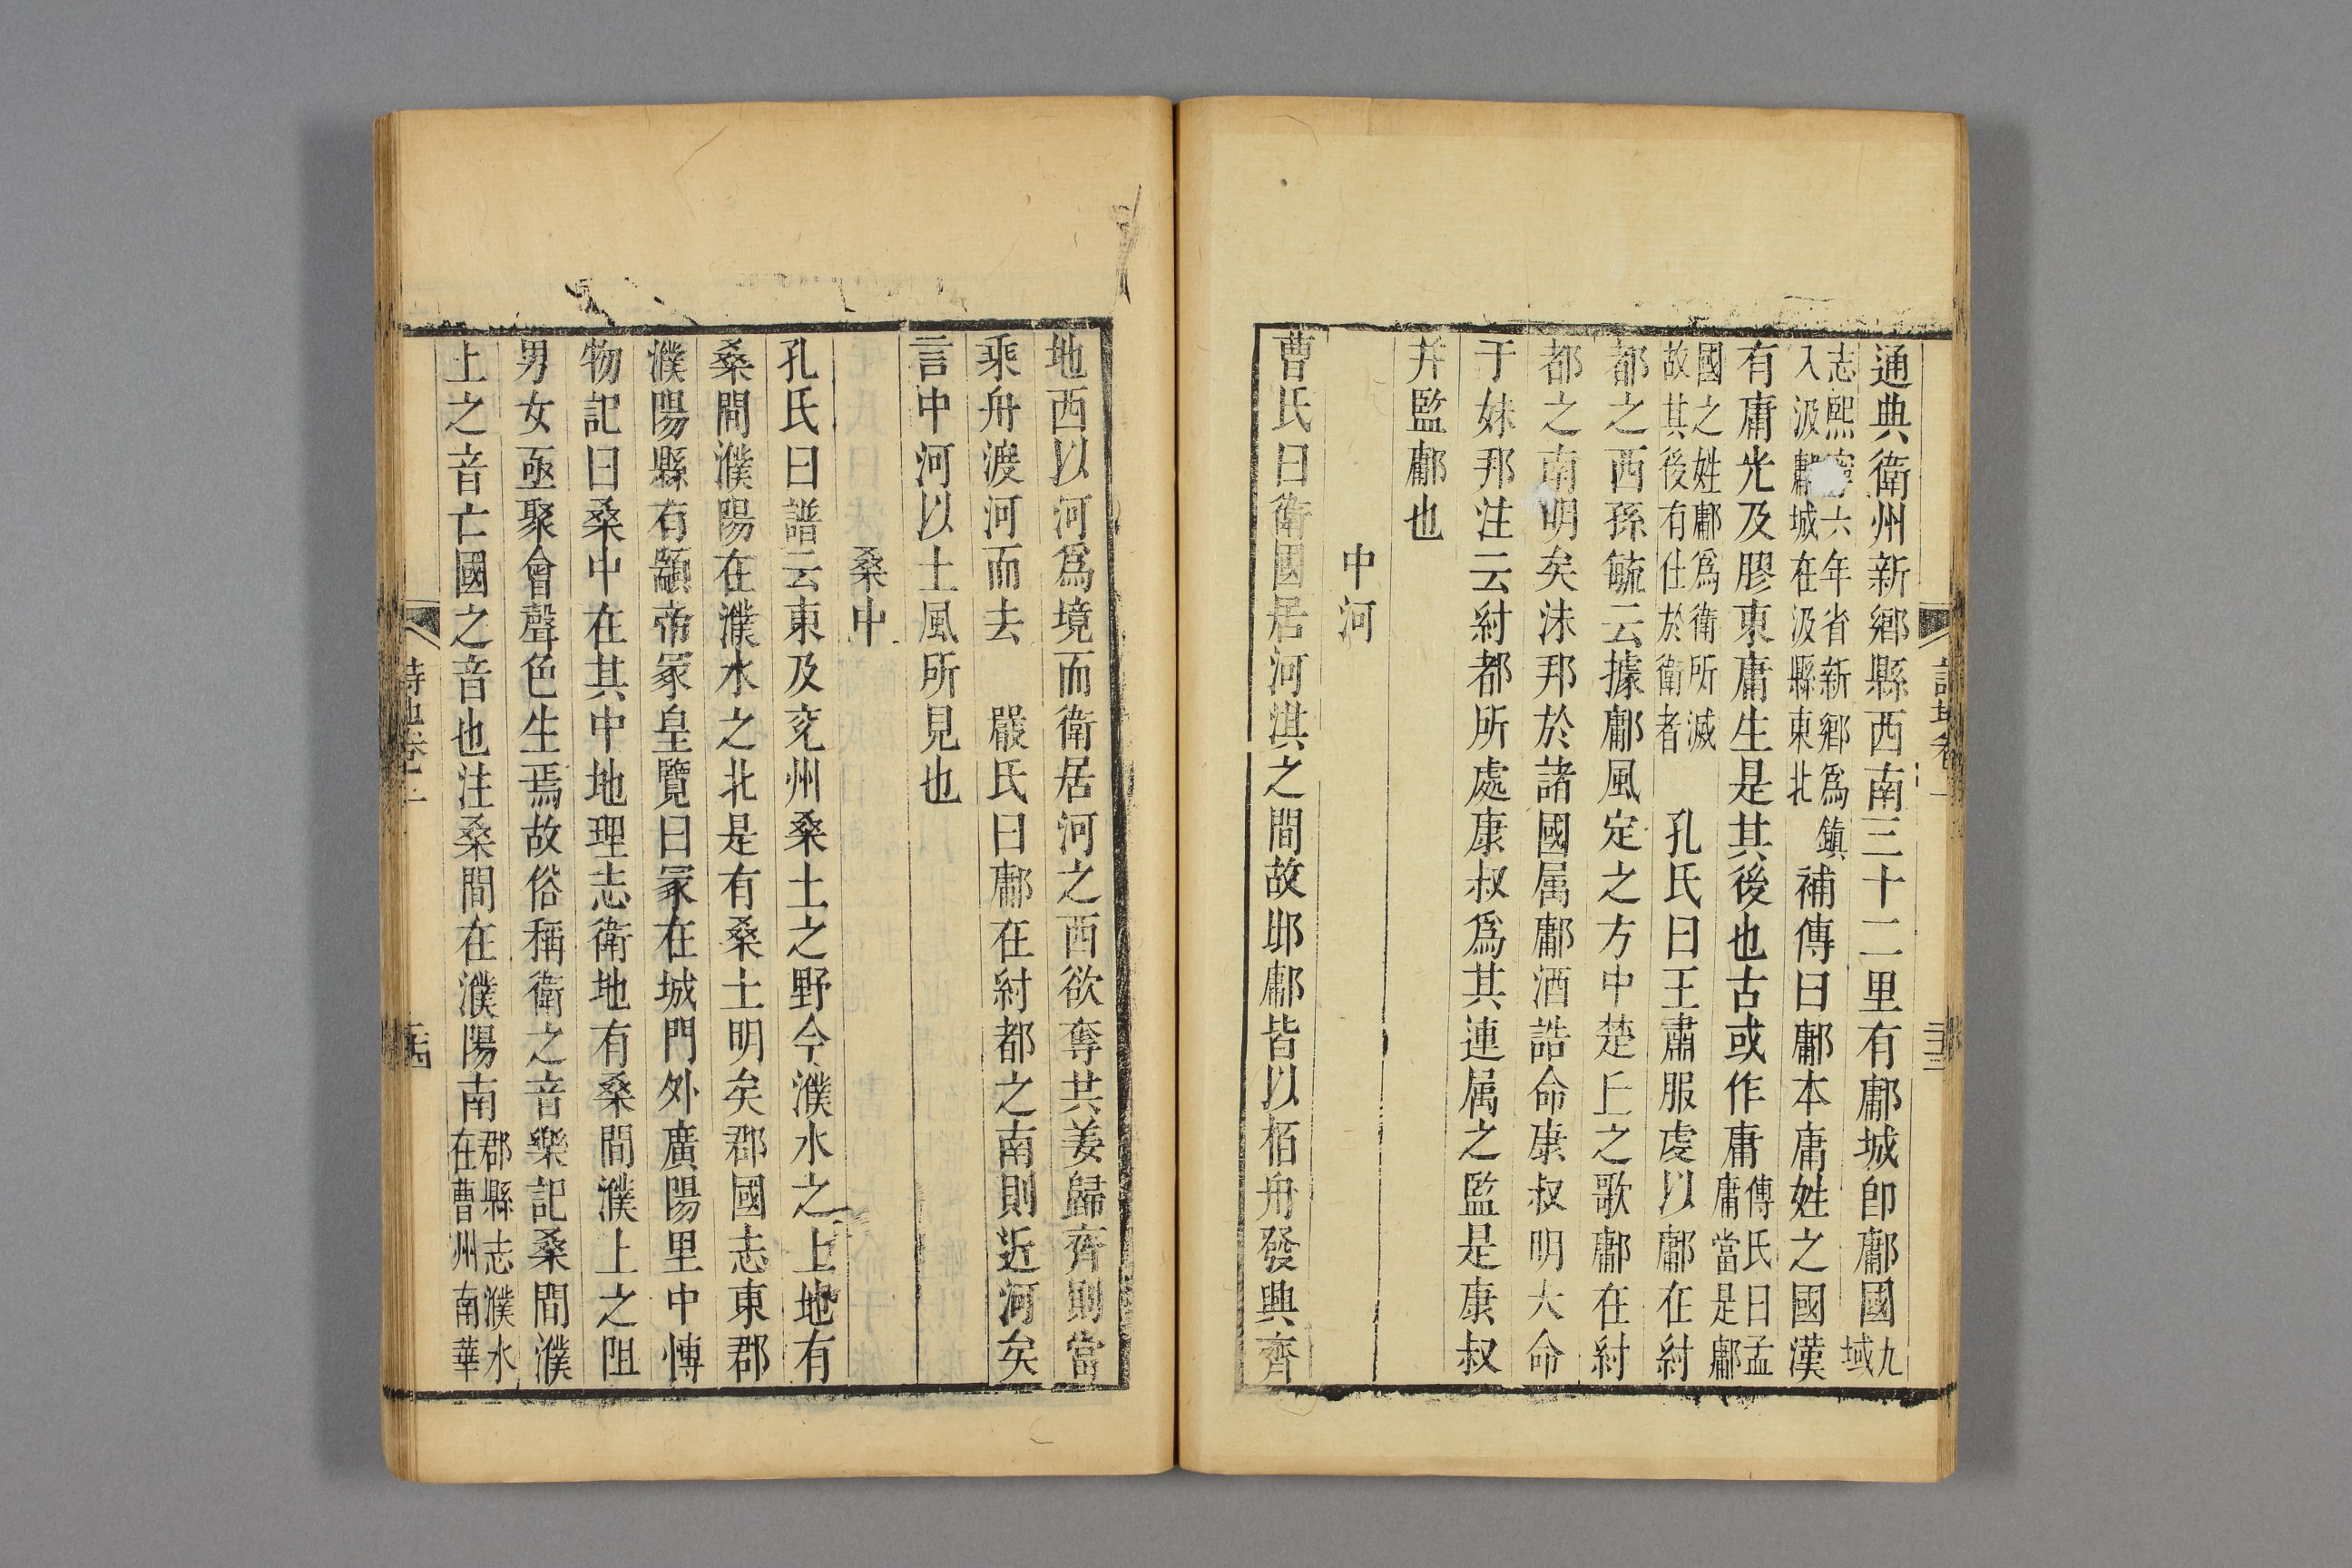 通典衛州新鄉縣西南三十二里有鄘城卽鄘國九域
志熙寧六年省新鄉爲鎮入汲鄘城在汲縣東北補傳曰鄘本庸姓之國漢
有庸光及膠東庸生是其後也古或作庸傳氏曰孟庸當是鄘
國之姓鄘爲衛所滅故其後有仕於衛者　孔氏曰王肅服虔以鄘在紂
都之西孫毓云據鄘風定之方中楚丘之歌鄘在紂
都之南明矣沬邦於諸國属鄘酒誥命康叔明大命
于妹邦注云紂都所處康叔爲其連属之監是康叔
并監鄘也
中河
曹氏曰衛國居河淇之間故邶鄘皆以栢舟發興齊
地西以河爲境而衛居河之西欲奪共姜歸齊則當
乘舟渡河而去　嚴氏曰鄘在紂都之南則近河矣
言中河以土風所見也
桑中
孔氏曰譜云東及兖州桑土之野今濮水之上地有
桑間濮陽在濮水之北是有桑土明矣郡國志東郡
濮陽縣有顓帝冢皇覽曰冢在城門外廣陽里中愽
物記曰桑中在其中地理志衛地有桑間濮上之阻
男女亟聚會聲色生焉故俗稱衛之音樂記桑間濮
上之音亡國之音也注桑間在濮陽南郡縣志濮水在曹州南華
詩地卷一